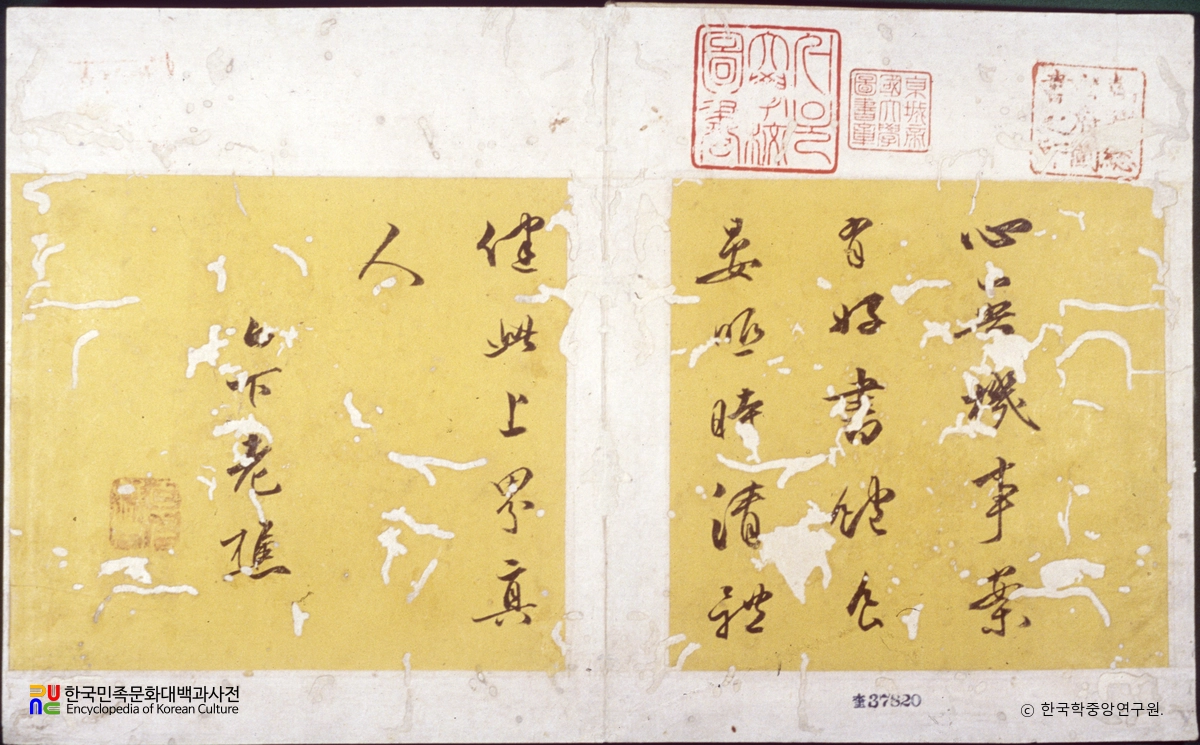 心無機事案
有好書飽食
晏眠時清體
健此上界真
人
老樵
서울大學校圖書
京城帝國大學圖書章
奎37820
한국민족문화대백과사전
Encyclopedia of Korean Culture
ⓒ 한국학중앙연구원.